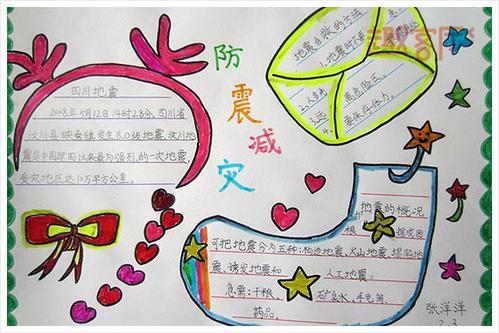 四川地震
2008年5月12日14时28分,四川省
汶川县映秀镇发生8.0级地震,汶川地
震是中国建国以来最为强烈的一次地震,
受灾地区达10万平方公里。
防
震
减
灾
地震自救的方法
1.地震时不要
2.人多先
3.远离危险区
4.要保存体力。
地震的概况
根据成因
可把地震分为五种:构造地震、火山地震、
震、诱发地震和人工地震。
急需:干粮、矿泉水、手电筒、
药品。
张洋洋
2.3